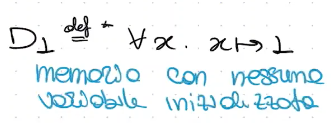 D⊥ def = ∀x. x ↦ ⊥
memoria con nessuna
variabile inizializzata